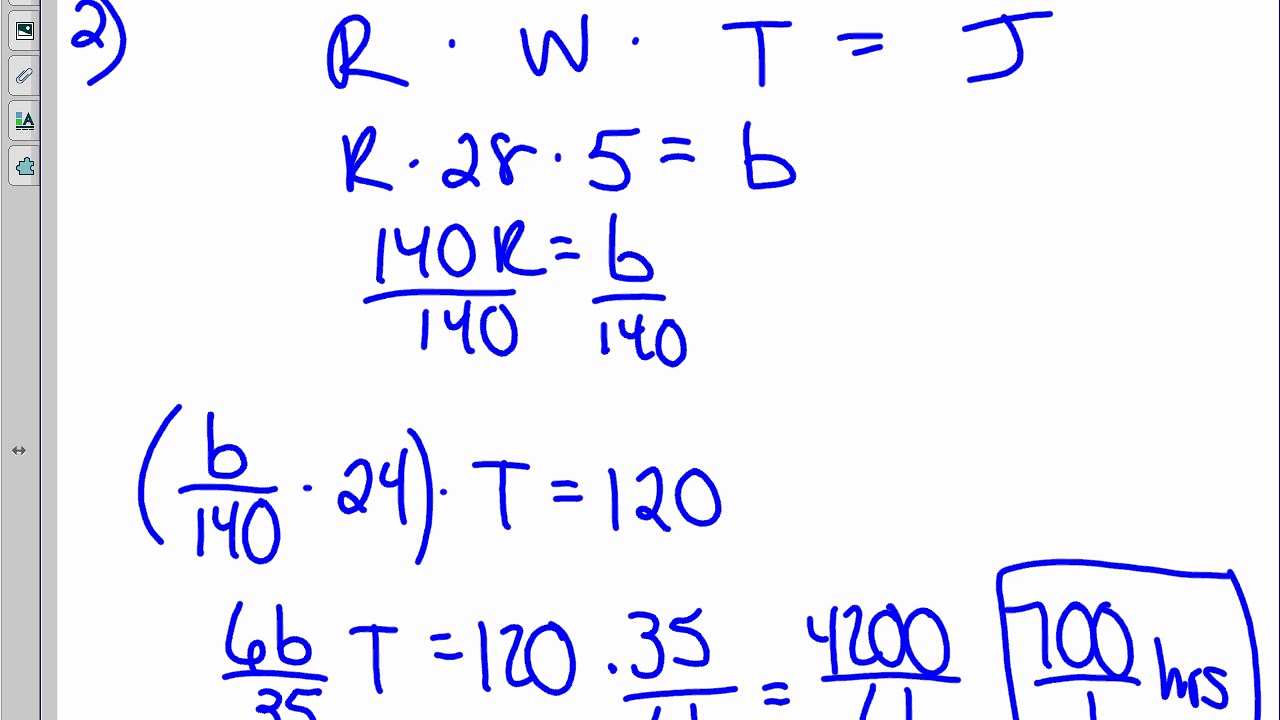 2) R · W · T = J
R · 28 · 5 = b
140R = b
140 140
(b/140 · 24) · T = 120
6b/35 T = 120 · 35 = 4200 700 hrs